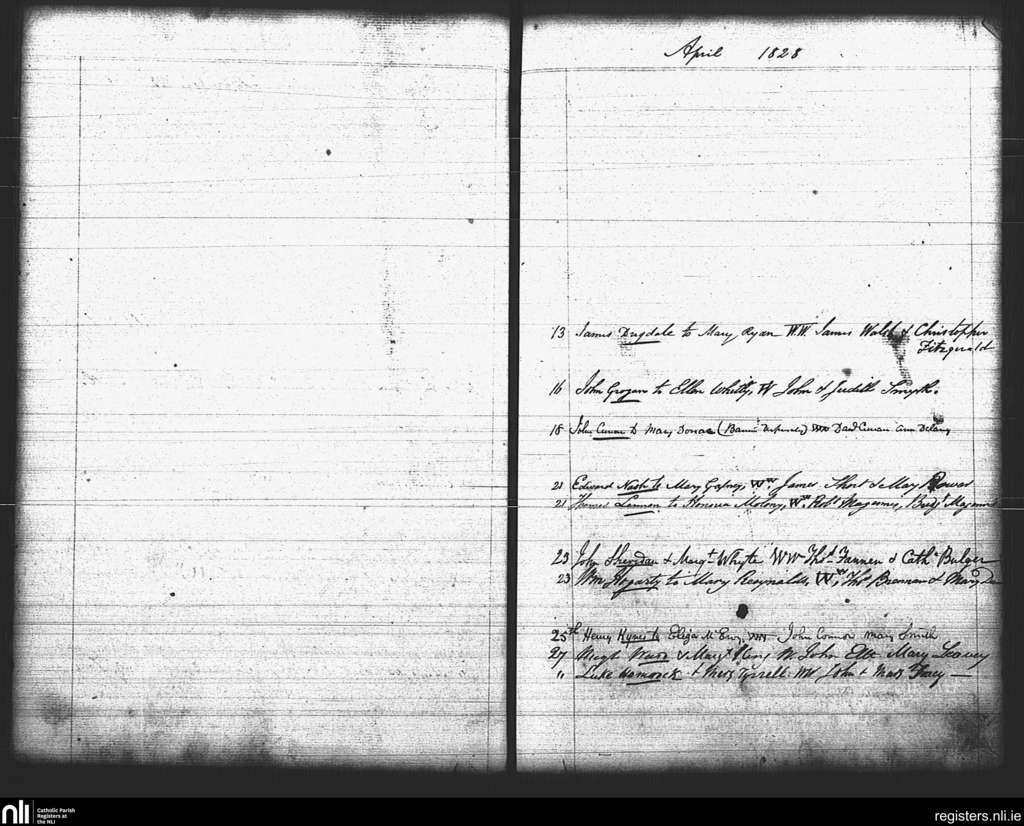 April 1828
13 James Dugdale to Mary Ryan WW. James Walsh & Christopher
Fitzgerald
16 John Grogan to Ellen Whitty, W John & Judith Smyth.
18 John Curran to Mary WW David Curran Ann Delany
21 Edward Nash to Mary Gafney, Ww. James Short & Mary Power
21 Thomas Lennon to Honora Molony, Ww Robt Magennis, Bridgt Magennis
23 John Sheridan & Margt. Whyte WW Thos. Fannen & Cathe Bulger
23 Wm Hogarty to Mary Reynolds, WW, Thos Brennan & Mary
25th Henry Kynes to Eliza WW John Connor Mary Smith
27 & Margt King W. John Mary Leavey
" Luke Hamrock & Mary Tyrrell. WW John & Mary Tracy —
nli Catholic Parish
Registers at
the NLI
registers.nli.ie